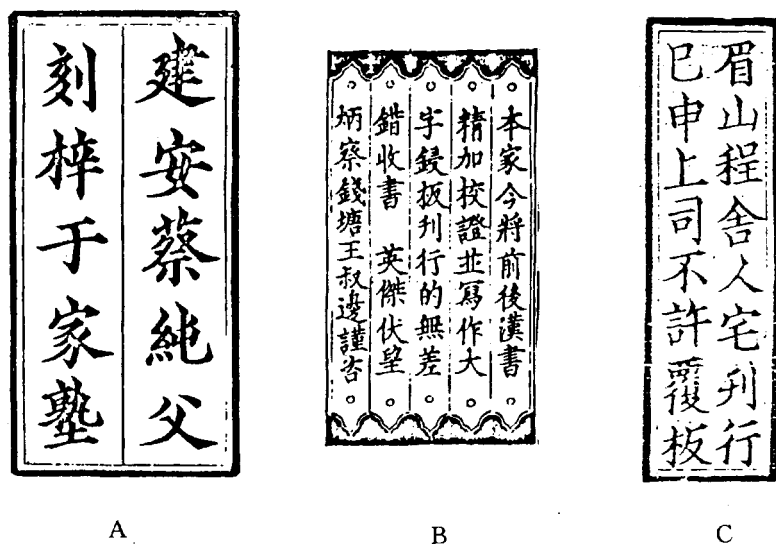 建安蔡純父
刻梓于家塾
本家今將前後漢書
精加校證並寫作大
字鋟板刊行的無差
錯收書 英傑伏望
炳察錢塘王叔邊謹咨
眉山程舍人宅刊行
已申上司不許覆板
A
B
C